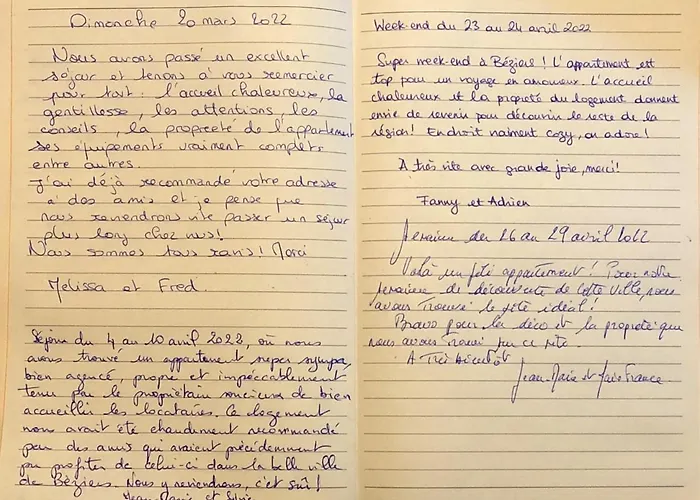 Dimanche 20 mars 2022
Nous avons passé un excellent
séjour et tenons à vous remercier
pour tout : l'accueil chaleureux, la
gentillesse, les attentions, les
conseils, la propreté de l'appartement
ses équipements vraiment complets
entre autres.
J'ai déjà recommandé votre adresse
à des amis et je pense que
nous reviendrons vite passer un séjour
plus long chez vous!
Nous sommes tous ravis! Merci
Melissa et Fred.
Séjour du 4 au 10 avril 2022, où nous
avons trouvé un appartement super sympa,
bien agencé, propre et impeccablement
tenu par le propriétaire soucieux de bien
accueillir les locataires. Ce logement
nous avait été chaudement recommandé
par des amis qui avaient précédemment
pu profiter de celui-ci dans la belle ville
de Béziers. Nous y reviendrons, c'est sûr!
Jean-Marie et Sylvie
Week-end du 23 au 24 avril 2022
Super week-end à Béziers! L'appartement est
top pour un voyage en amoureux. L'accueil
chaleureux et la propreté du logement donnent
envie de revenir pour découvrir le reste de la
région! Endroit vraiment cozy, on adore!
A très vite avec grande joie, merci!
Fanny et Adrien
Semaine du 26 au 29 avril 2022
Voilà un joli appartement! Pour notre
semaine de découverte de cette ville, nous
avons trouvé le gîte idéal!
Bravo pour la déco et la propreté que
nous avons trouvé sur ce site.
A Très bientôt
Jean-Marie et Marie France